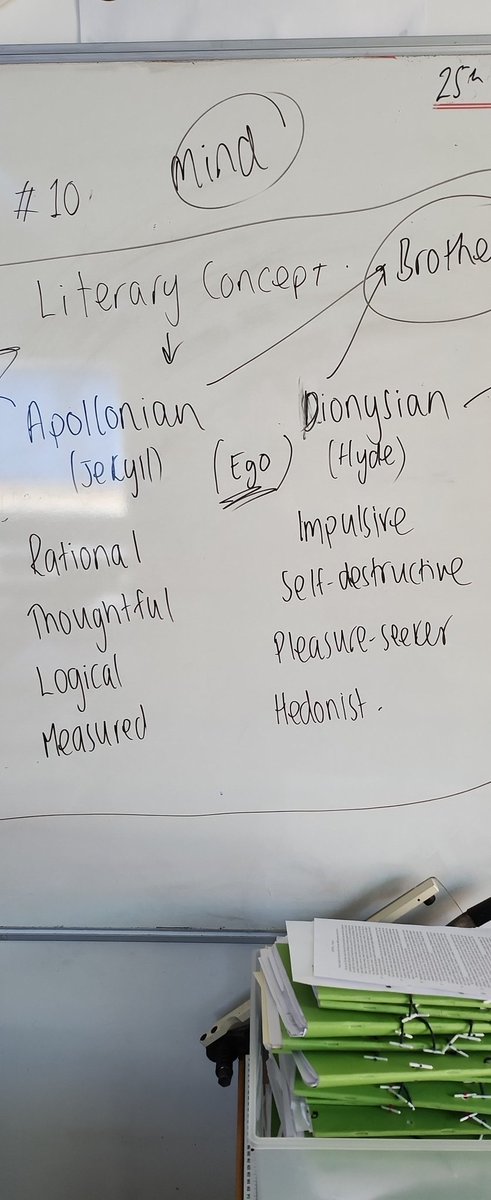 25th
Mind
# 10.
Literary Concept.
Brothe
Apollonian
Dionysian
(Jekyll)
(Ego)
(Hyde)
Rational
Impulsive
Thoughtful
Self-destructive
Logical
Pleasure-seeker
Measured
Hedonist.